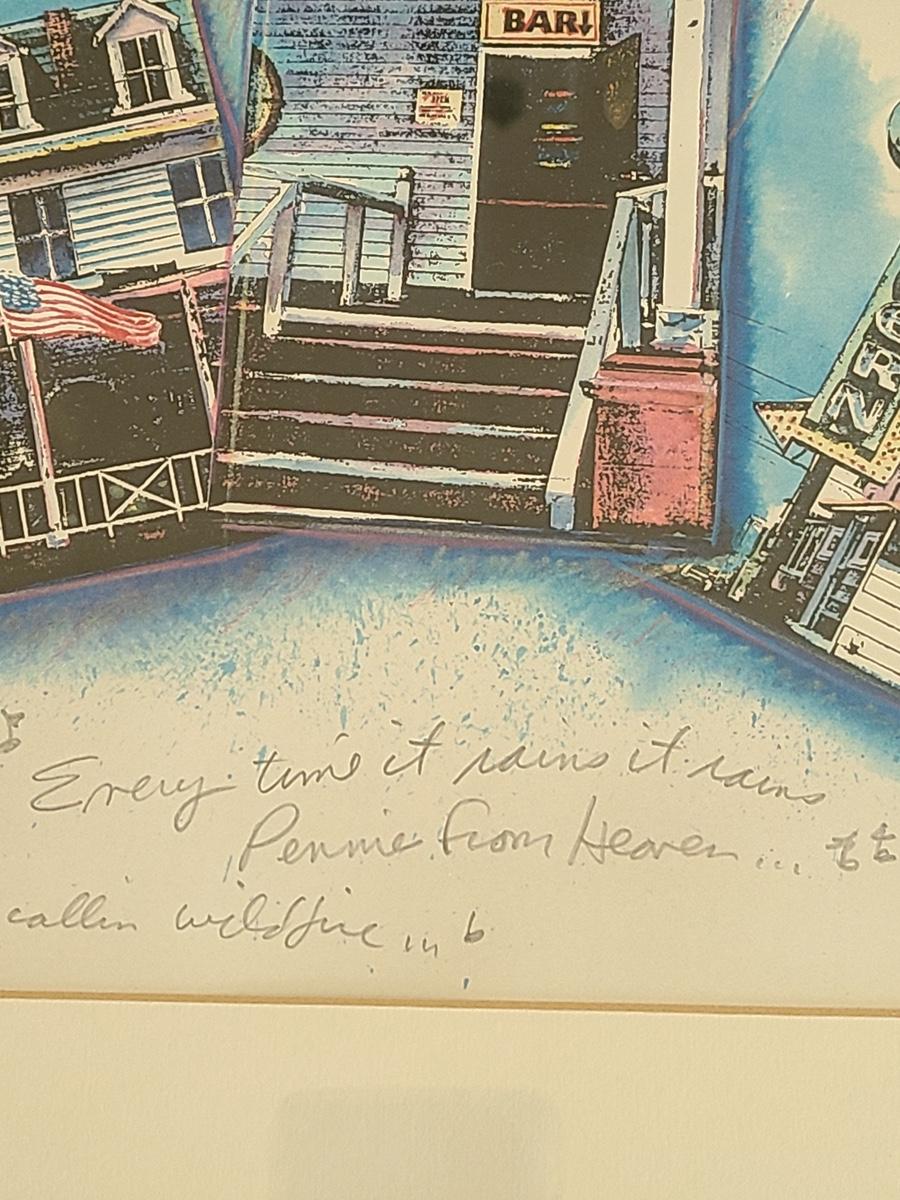 BAR↓
Every time it rains it rains
Pennie from Heaven...
callin wildfire...